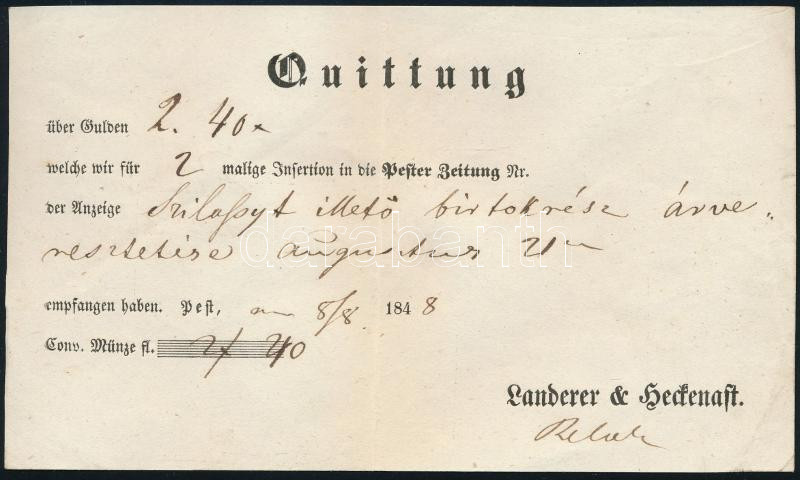 Quittung
über Gulden 2. 40x
welche wir für 2 malige Insertion in die Pester Zeitung Nr.
der Anzeige Szilassyt illető birtokrész árve„
resztetése augustus
empfangen haben. Pest, am 8/8 1848
Conv. Münze fl. 2f 40
Landerer & Heckenast.
darabanth